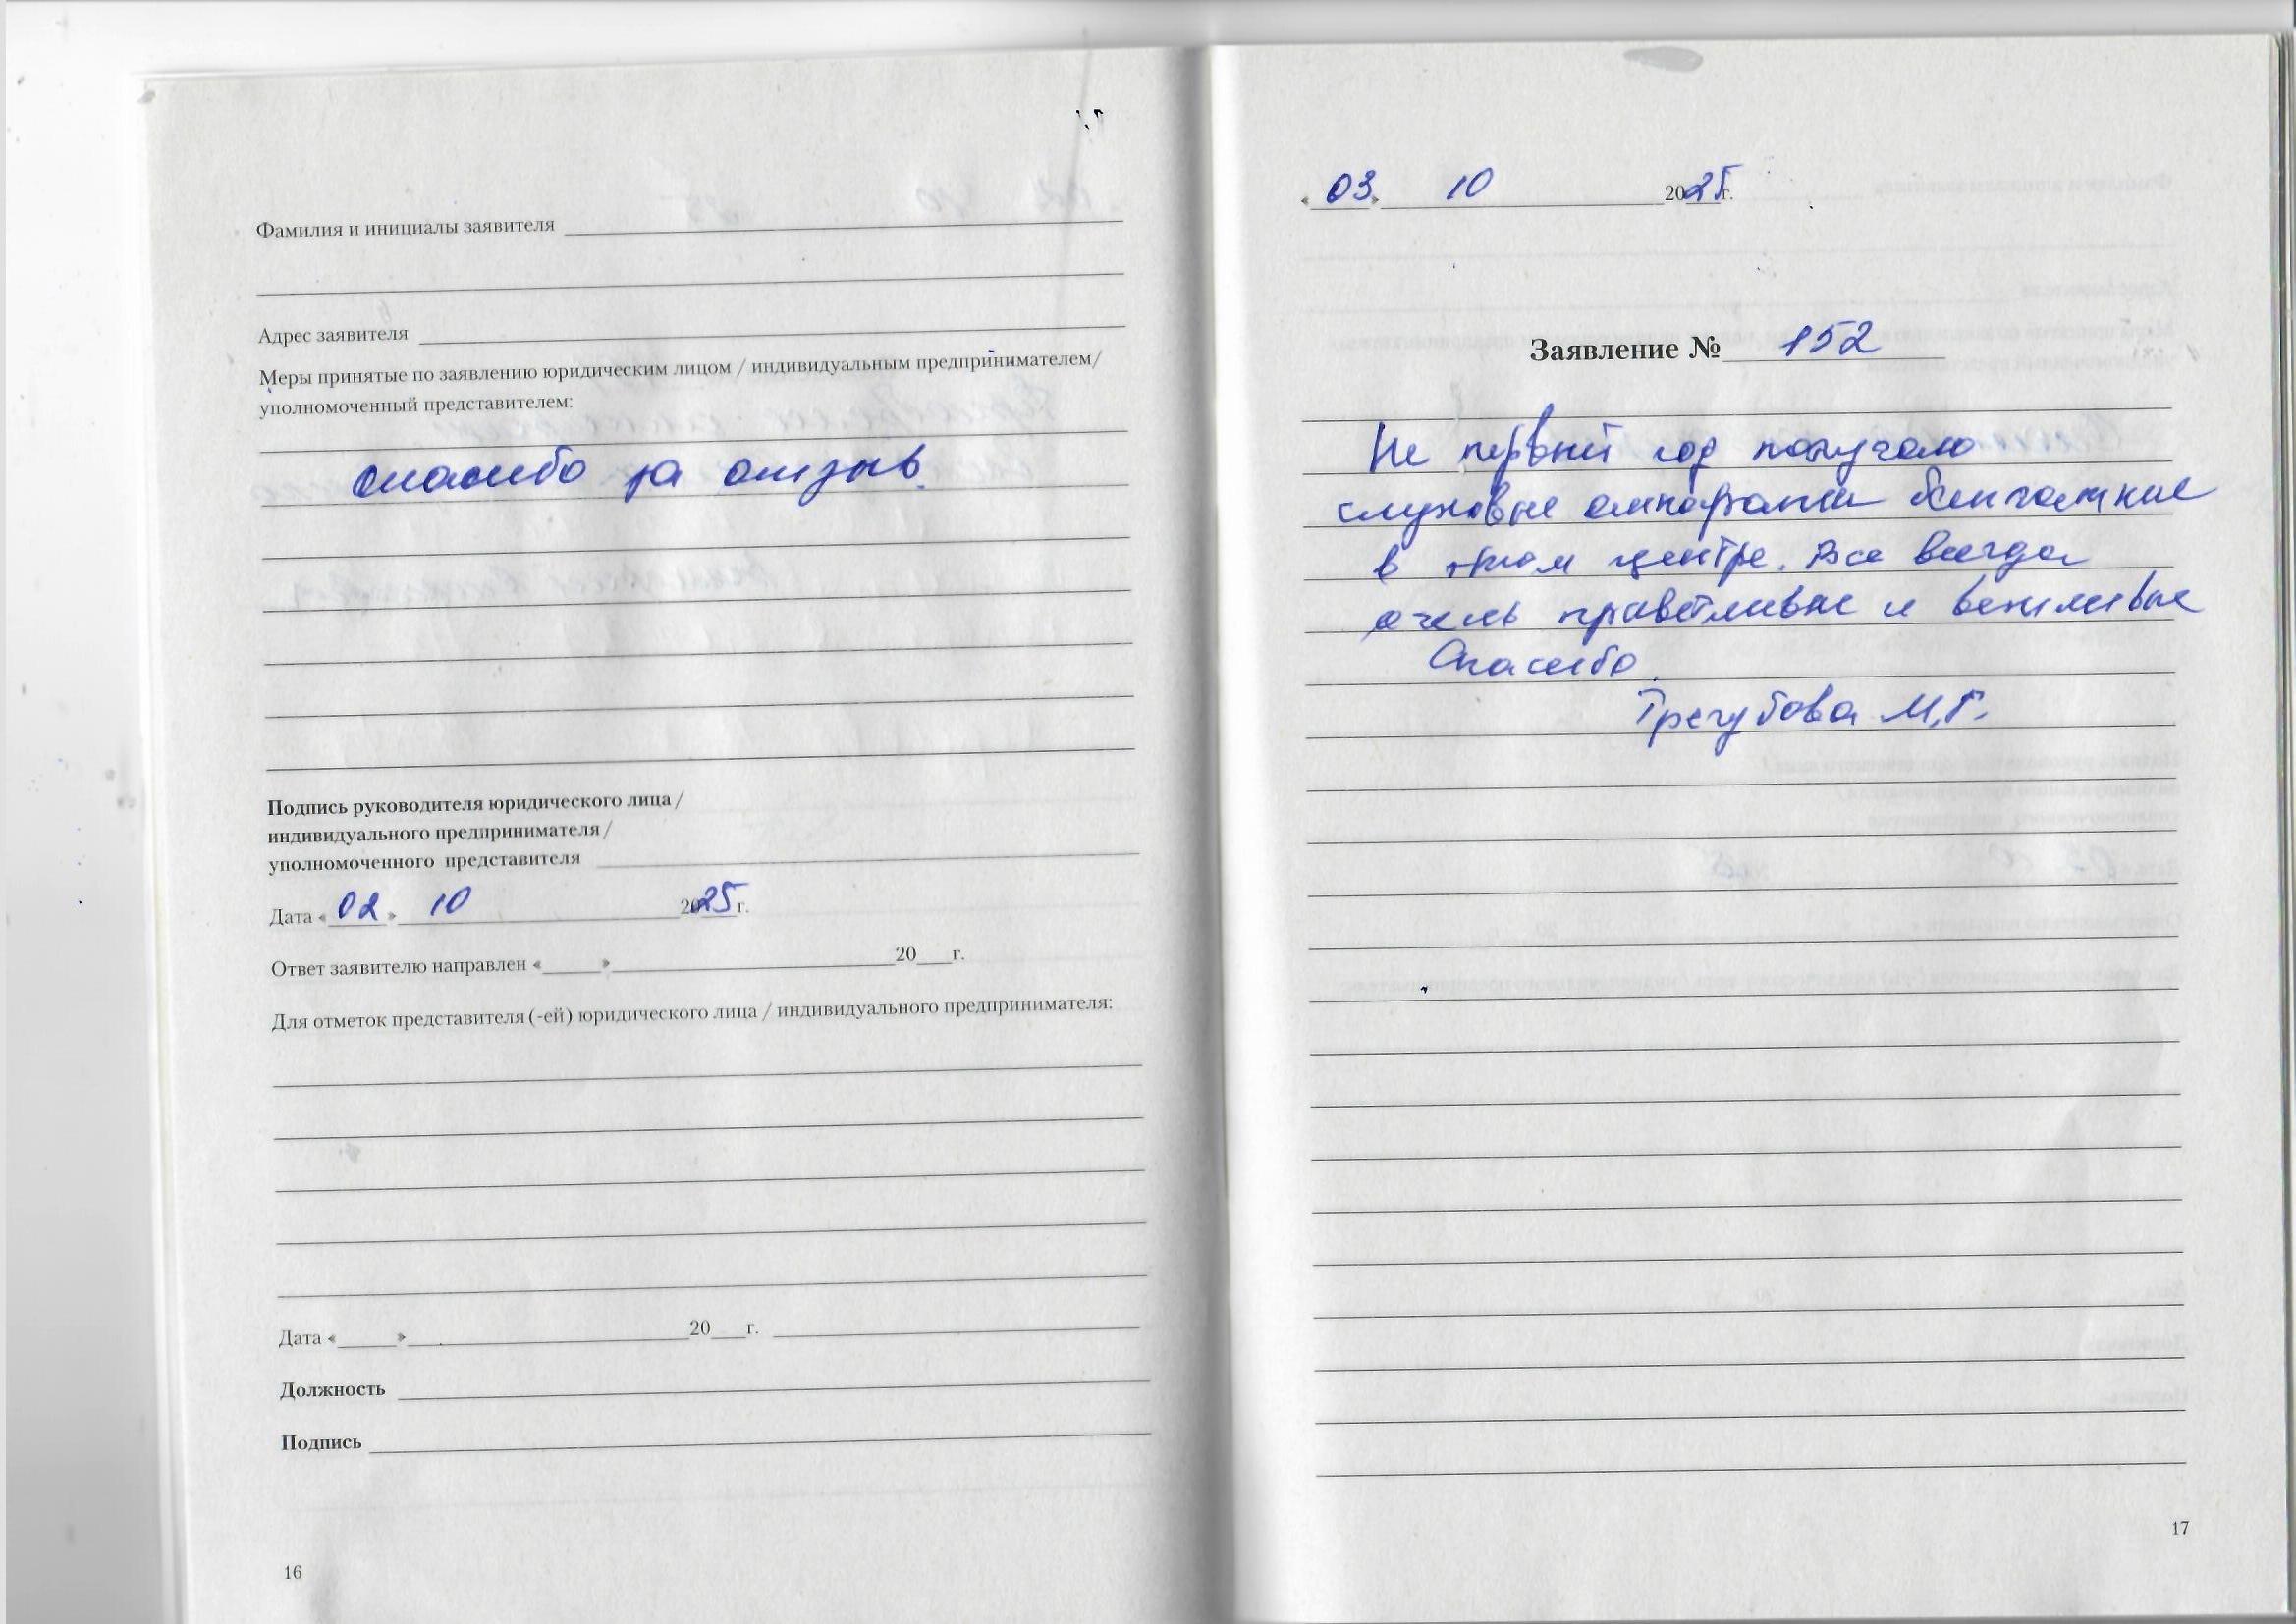 Фамилия и инициалы заявителя
Адрес заявителя
Меры принятые по заявлению юридическим лицом / индивидуальным предпринимателем/
уполномоченный представителем:
спасибо за отзыв.
Подпись руководителя юридического лица /
индивидуального предпринимателя /
уполномоченного представителя
Дата « 02 » 10 2025 г.
Ответ заявителю направлен «_____» 20___г.
Для отметок представителя (-ей) юридического лица / индивидуального предпринимателя:
Дата «_____» 20___г.
Должность
Подпись
16
« 03 » 10 2025 г.
Заявление № 152
Не первый год получаю
слуховые аппараты бесплатные
в этом центре. Все всегда
очень приветливые и вежливые
Спасибо.
Трегубова М.Г.
17